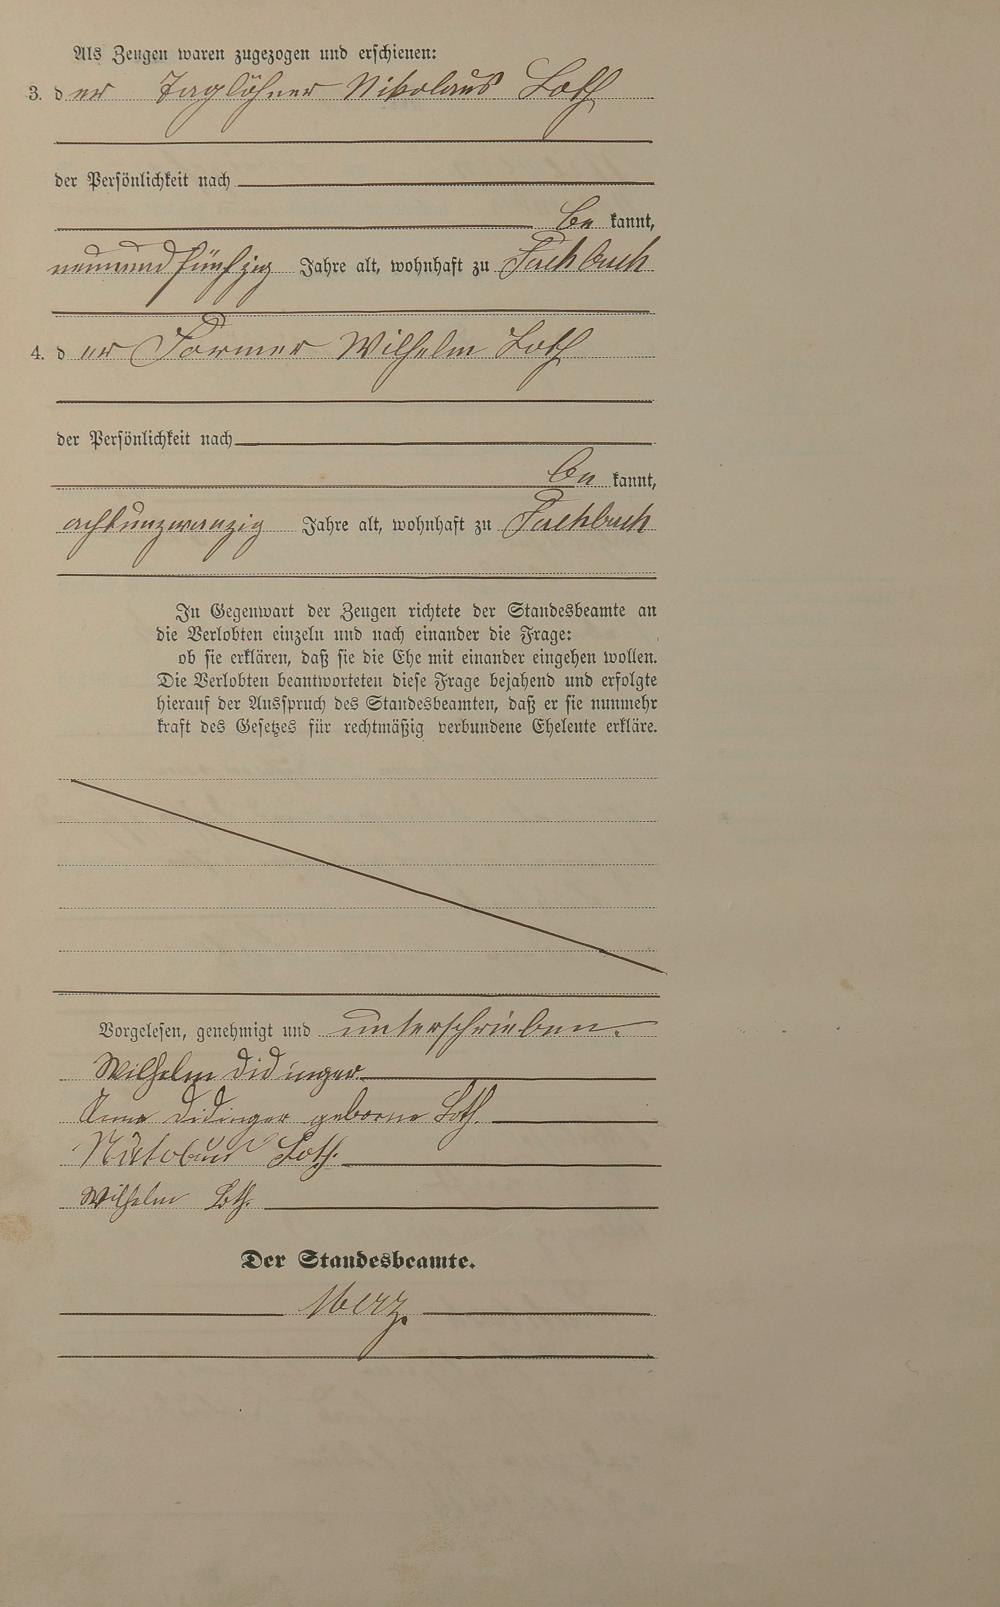 Als Zeugen waren zugezogen und erschienen:
3. der Taglöhner Nikolaus Loth
der Persönlichkeit nach
be kannt,
neunundfünfzig Jahre alt, wohnhaft zu Fachbach
4. der Former Wilhelm Loth
der Persönlichkeit nach
be kannt,
achtunzwanzig Jahre alt, wohnhaft zu Fachbach
In Gegenwart der Zeugen richtete der Standesbeamte an
die Verlobten einzeln und nach einander die Frage:
ob sie erklären, daß sie die Ehe mit einander eingehen wollen.
Die Verlobten beantworteten diese Frage bejahend und erfolgte
hierauf der Ausspruch des Standesbeamten, daß er sie nunmehr
kraft des Gesetzes für rechtmäßig verbundene Eheleute erkläre.
Vorgelesen, genehmigt und unterschrieben.
Wilhelm Didinger
Anna Didinger geborne Loth
Loth.
Wilhelm Loth.
Der Standesbeamte.
Merz.